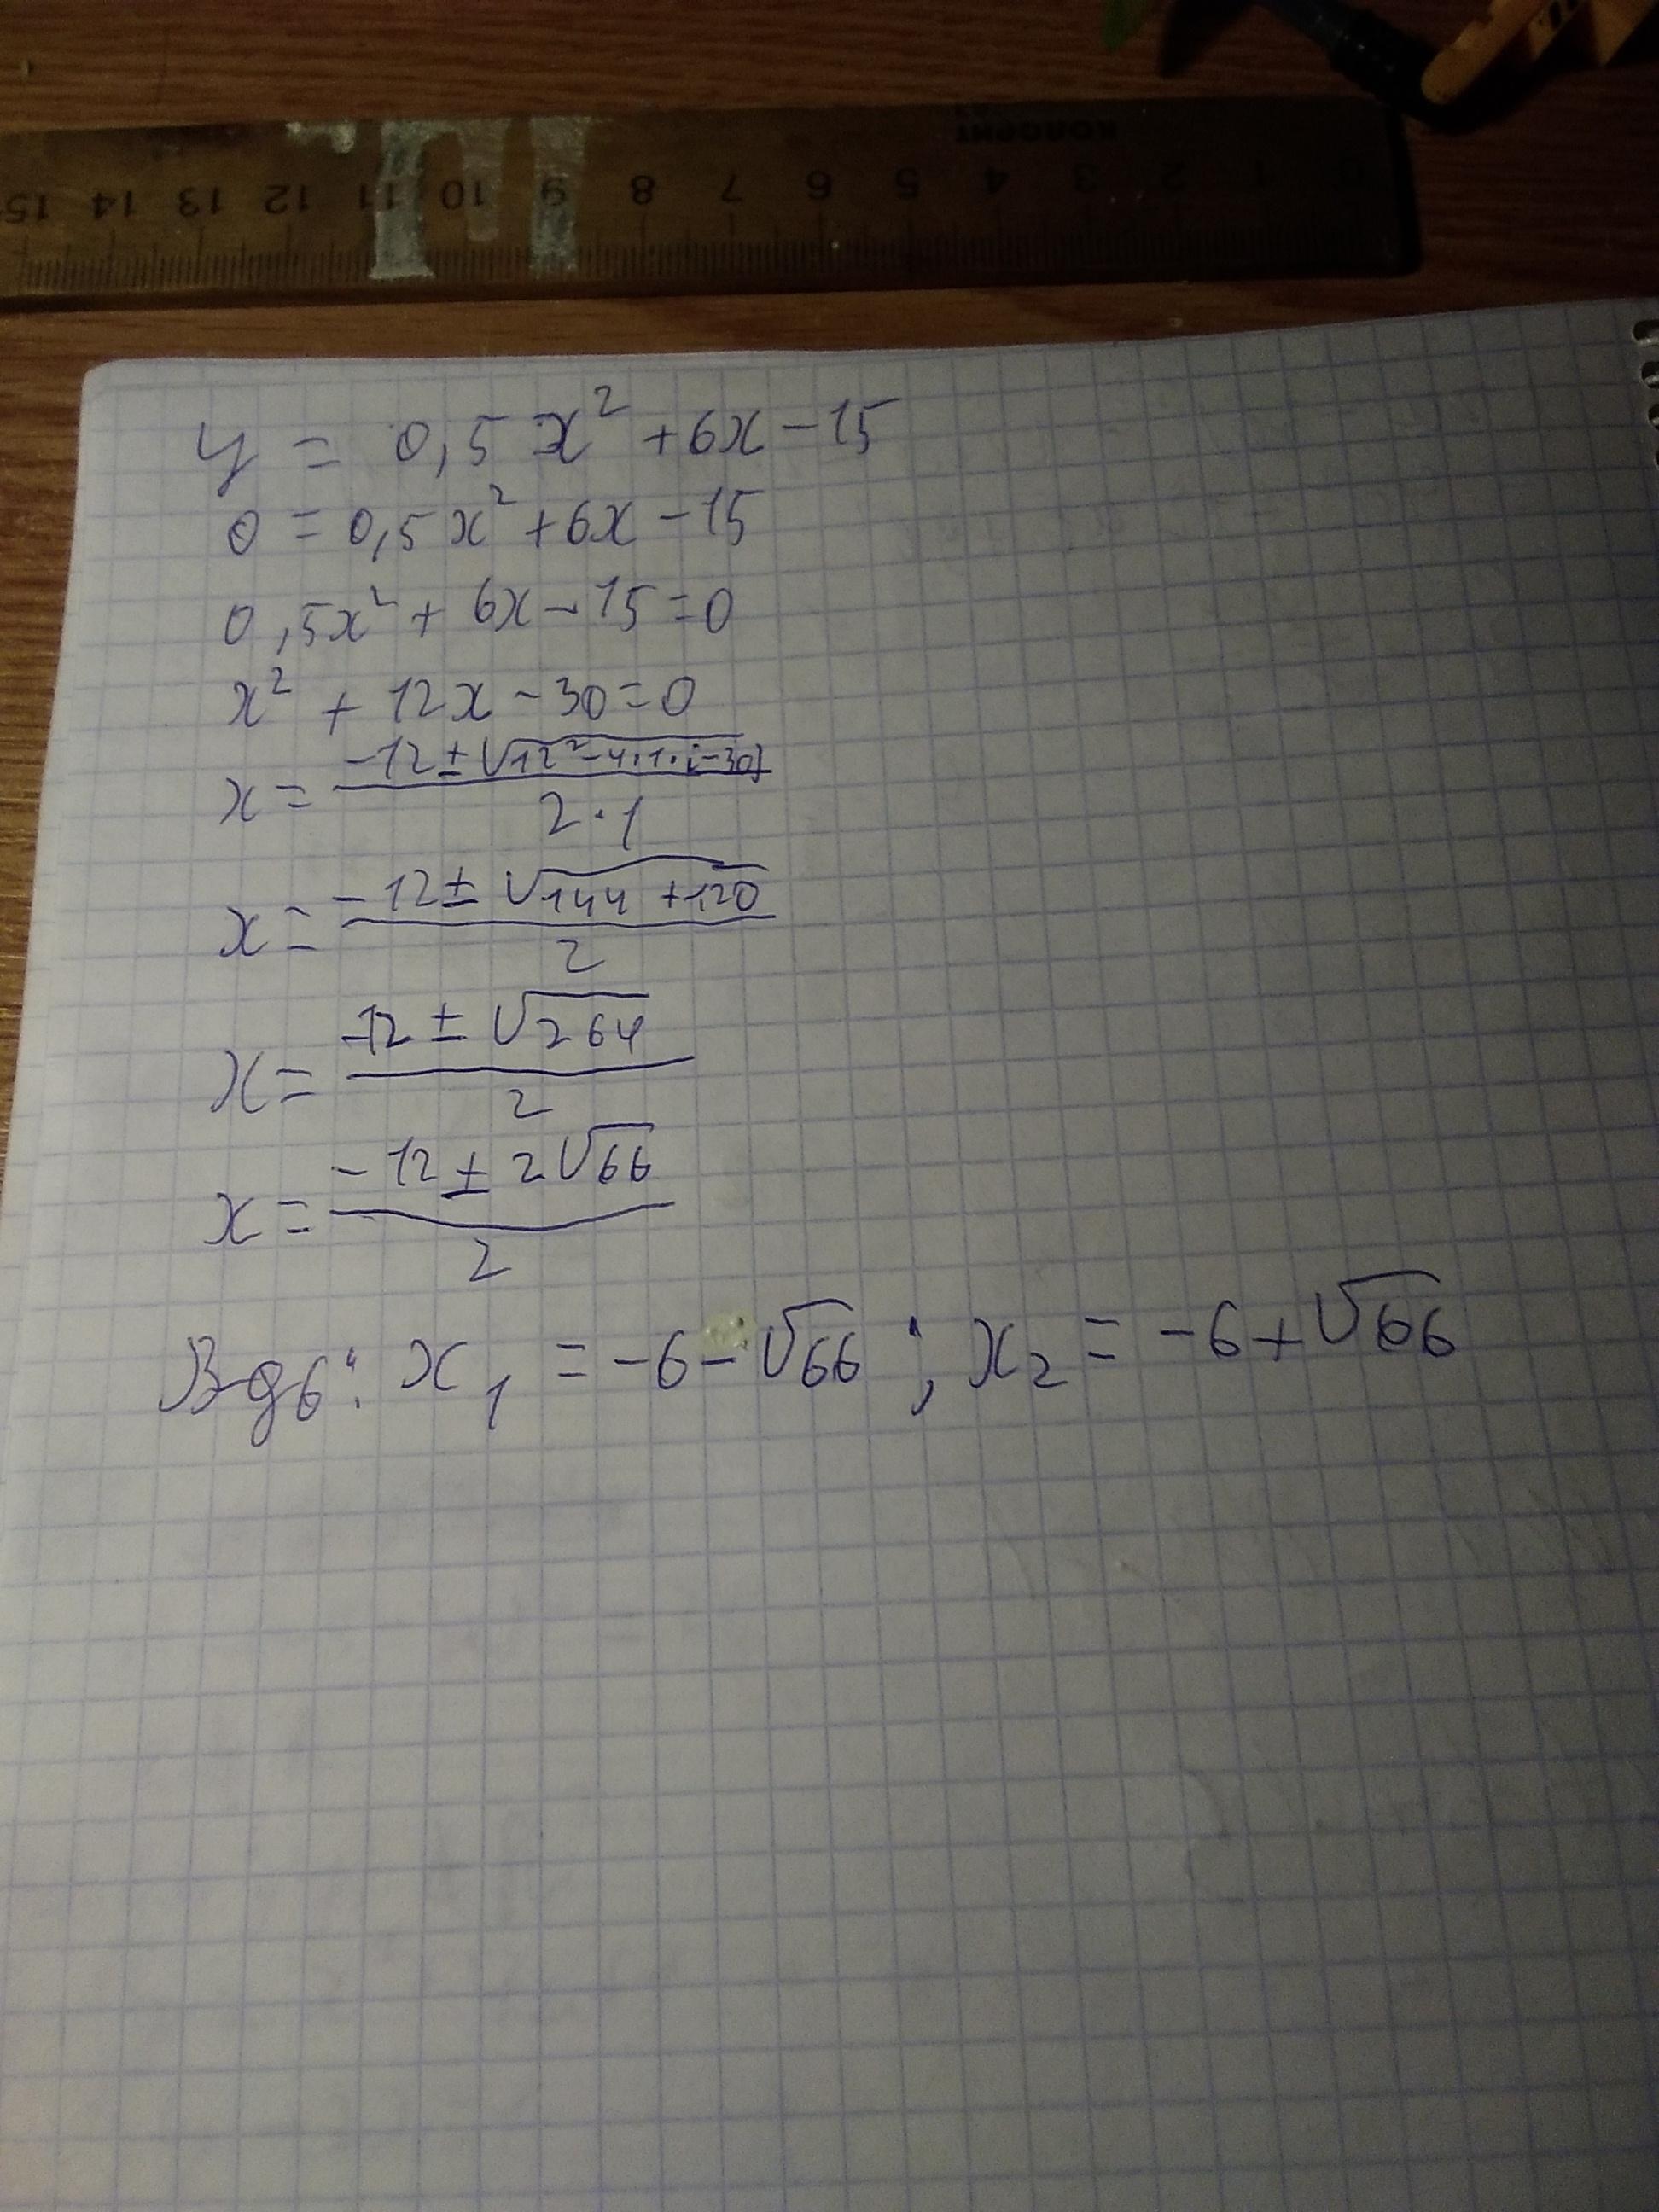 15 14 13 12 11 10 9 8 7 6 5 4 3 2 1 0
КОЛОРИТ
y = 0,5x² + 6x - 15
0 = 0,5x² + 6x - 15
0,5x² + 6x - 15 = 0
x² + 12x - 30 = 0
x = (-12 ± √(12² - 4·1·(-30))) / (2·1)
x = (-12 ± √(144 + 120)) / 2
x = (-12 ± √264) / 2
x = (-12 ± 2√66) / 2
x₁ = -6 - √66 ; x₂ = -6 + √66